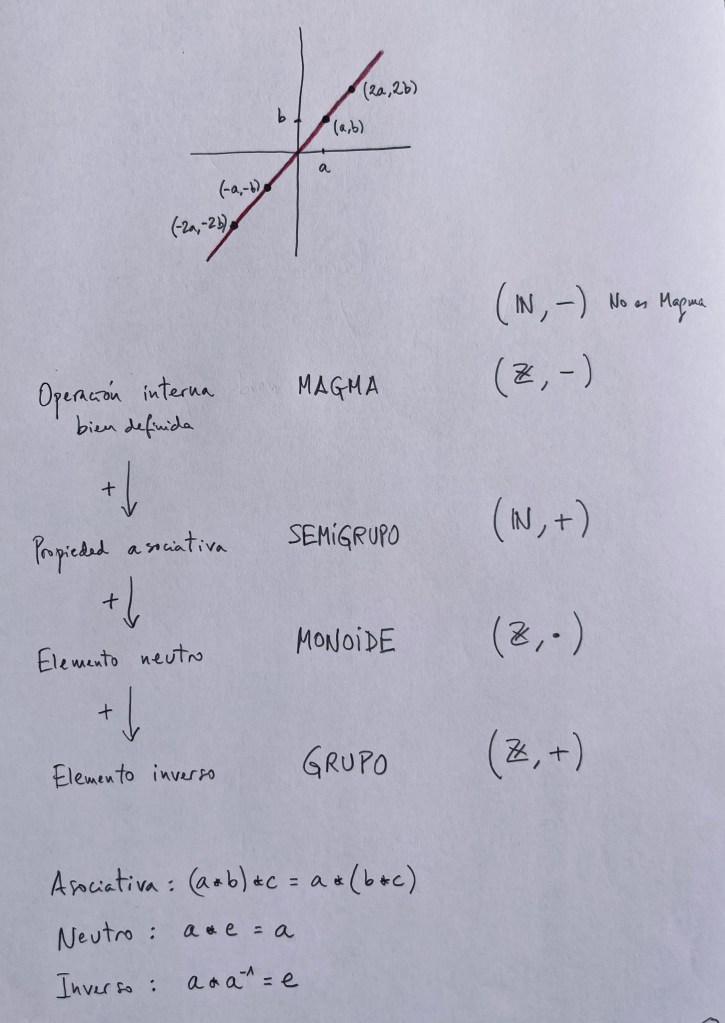 (2a,2b)
b
(a,b)
a
(-a,-b)
(-2a,-2b)
(ℕ, -) No es Magma
Operación interna MAGMA (ℤ, -)
bien definida
+
Propiedad asociativa SEMiGRUPO (ℕ, +)
+
Elemento neutro MONOiDE (ℤ, ·)
+
Elemento inverso GRUPO (ℤ, +)
Asociativa : (a*b)*c = a*(b*c)
Neutro : a * e = a
Inverso : a * a⁻¹ = e